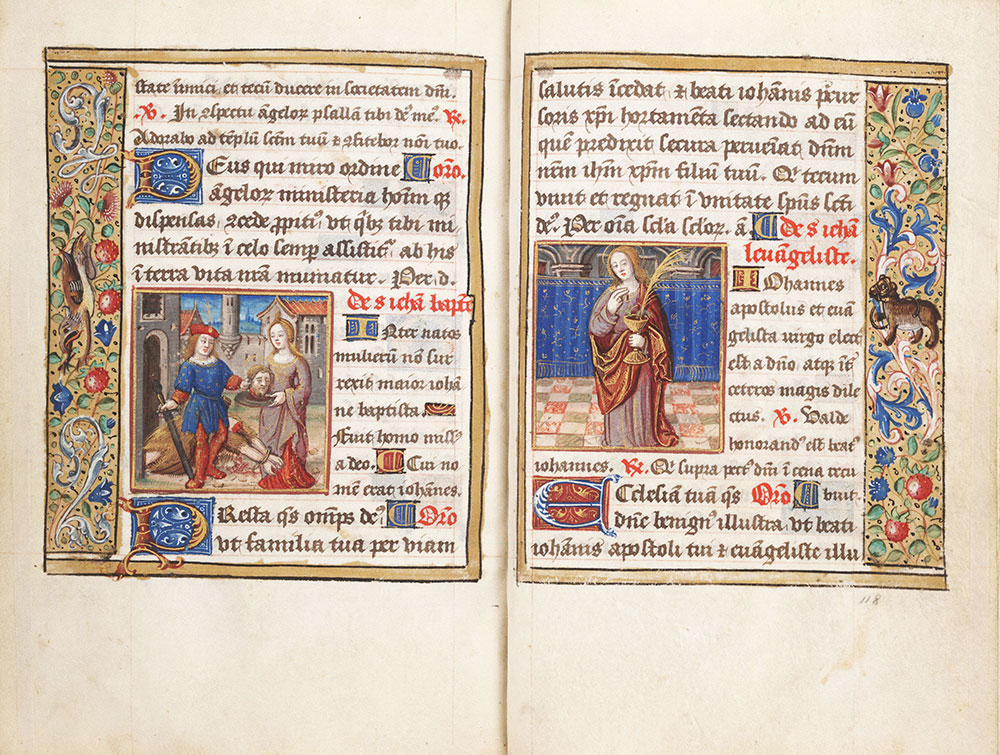 state inimici, et tecū ducere in societatem dm̄.
℣. In ↄspectu angelor̄ psallā tibi de' me'. ℟.
Adorabo ad tēplū sc̄m tuū & ↄfitebor nōī tuo.
Deus qui miro ordine Oro.
āgelor̄ ministeria hoīm q̄
dispensas, ↄcede ꝓpitiꝰ vt q̄bꝫ tibi mi
nistrātibꝫ ī celo semp̄ assistit̄ ab his
ī terra vita nr̄a muniatur. Per. d.
De s iehan bapte
Inter natos
mulierū nō sur
rexit maior ioha
ne baptista
Fuit homo missꝰ
a deo. Cui no
mē erat iohānes.
Presta q̄s om̄ps de' Oro
vt familia tua per viam
salutis īcedat, & beati iohānis p̄cur
soris xp̄i hortamēta sectando ad eū
quē predixit secura perueniat dn̄m
nr̄m ihm̄ xp̄m filiū tuū. Qi tecum
viuit et regnat ī vnitate spūs sc̄ti
de'. Per oīa sc̄la sc̄lor̄. ā De s iehā
leuangeliste.
Iohannes
apostolus et euā
gelista virgo elect
est a dn̄o atq̄ īt̄
ceteros magis dile
ctus. ℣. Valde
honorandꝰ est beatꝰ
iohannes. ℟. Qi supra pectꝰ dn̄i ī cena recu
Ecclesiā tuā q̄s Oro buit.
dn̄e benignꝰ illustra, vt beati
iohānis apostoli tui & euāgeliste illu
118